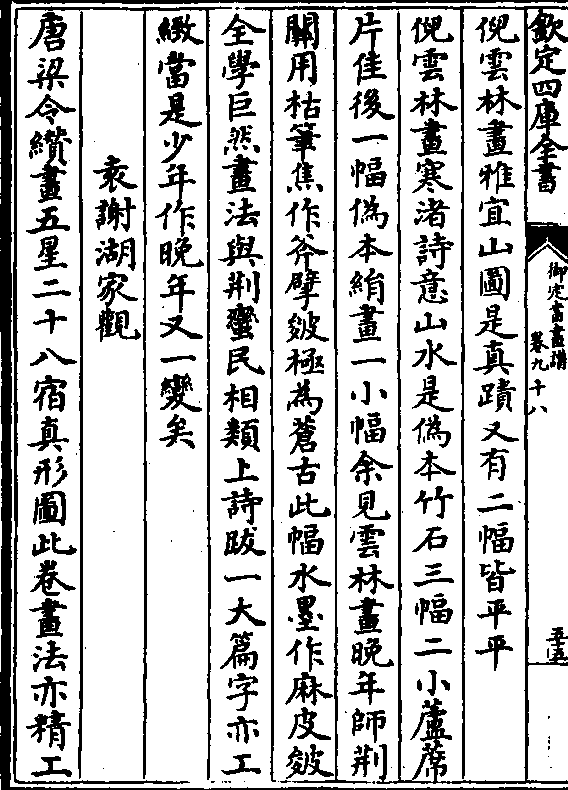 欽定四庫全書
御定書畫譜
卷九十八
五五
倪雲林畫雅宜山圖是真蹟又有二幅皆平平
倪雲林畫寒渚詩意山水是偽本竹石三幅二小蘆蓆
片佳後一幅偽本絹畫一小幅余見雲林畫晚年師荆
關用枯筆焦作斧擘皴極為蒼古此幅水墨作麻皮皴
全學巨然畫法與荆蠻民相類上詩跋一大篇字亦工
緻當是少年作晚年又一變矣
袁謝湖家觀
唐梁令瓚畫五星二十八宿真形圖此卷畫法亦精工